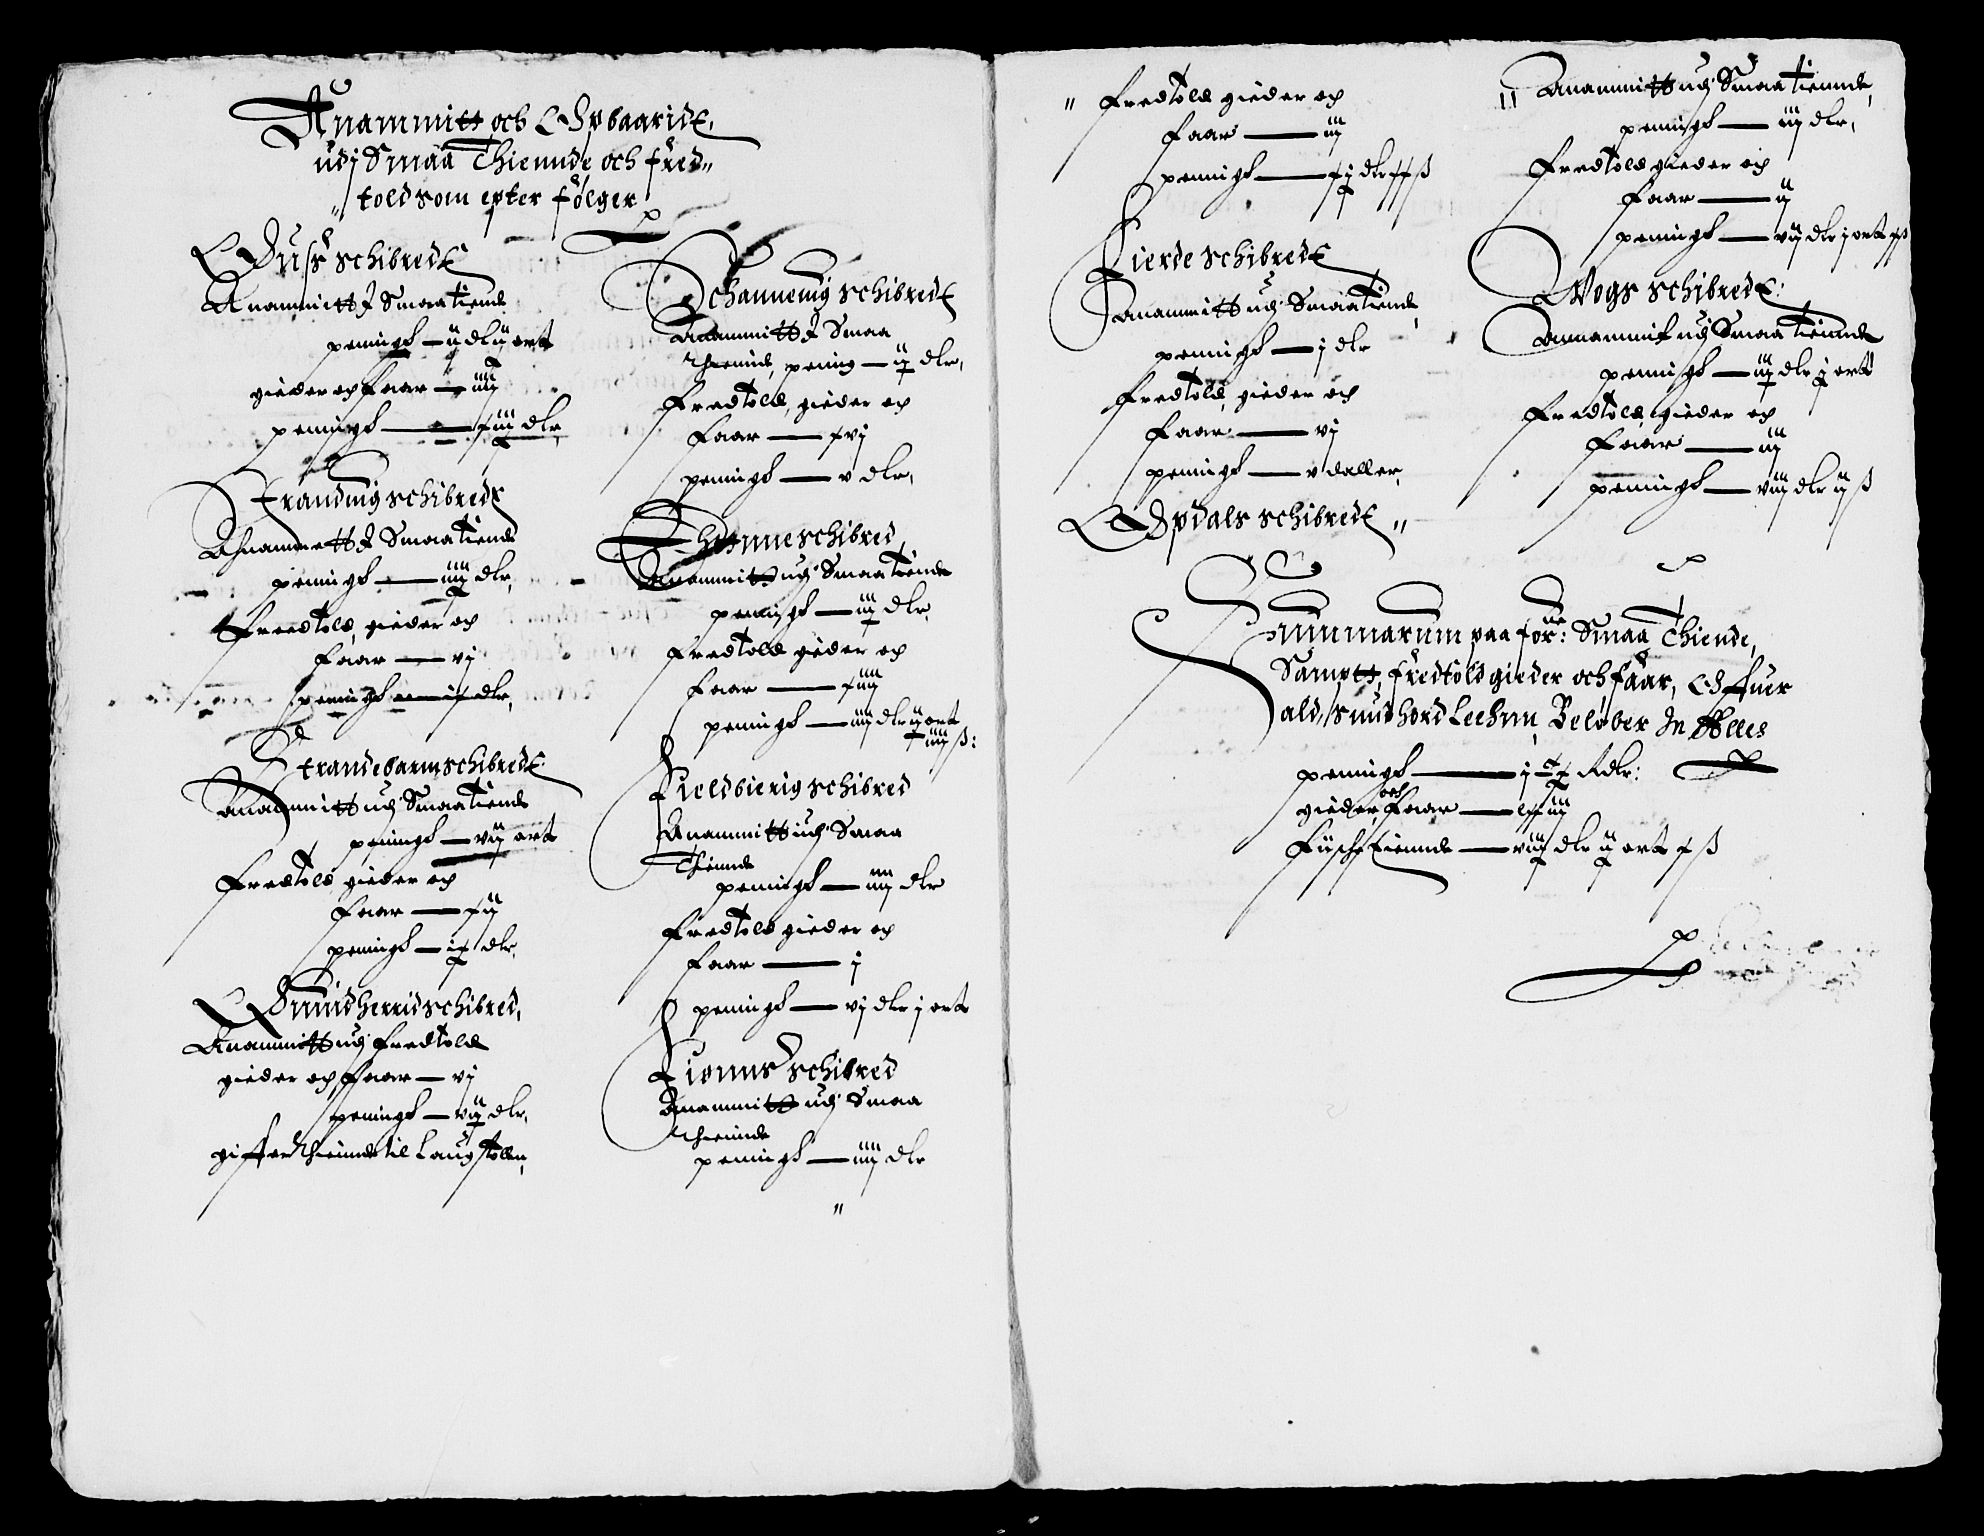 Anammitt och Opbaaridt,
udj Smaa Thiennde och fred„
„ told som epter følger
Ouss schibredt
Anammitt I Smaa tiende
peningk — ij dlr ij ort
gieder och faar — iiij
peningk — xiij dlr,
Strandwig schibredt
Ahnammett I Smaa tiende
peningk — iiij dlr,
fredtold, gieder och
faar — vj
peningk — ix dlr,
Strandebarm schibredt
Anammitt udj Smaa tiende
peningk — vij ort
fredtold, gieder och
faar — xij
peningk — ix dlr,
Quindherrid schibred,
Anammitt udj fredtold
gieder och faar — vj
peningk — vij dlr,
giffer thiende til Laugstolen,
Schanneuig schibredt
Anammitt I Smaa
thiende, pening — ij dlr,
fredtold, gieder och
faar — xvj
peningk — v dlr,
Ethnne schibred,
Anammitt udj Smaa tiende
peningk — iij dlr,
fredtold gieder och
faar — xiiij
peningk — iiij dlr ij ort
iiij ß:
Fieldbierig schibred
Anammitt udj Smaa
Thiennde
peningk — iiij dlr
fredtold gieder och
faar — j
peningk — vj dlr j ort
Fionns schibred
Anammitt udj Smaa
thiende
peningk — iiij dlr
„
„ fredtold gieder och
faar — iij
peningk — xj dlr xx ß
Fierde schibredt
Anammitt udj Smaa tiende,
peningk — j dlr
fredtold, gieder och
faar — vj
peningk — v daller,
Opdals schibredt „
„ Anammitt udj Smaa tiennde,
peningk — iij dlr,
fredtold gieder och
faar — ij
peningk — vij dlr j ort x ß
Wogs schibredt:
Annammit udj Smaa tiende
peningk — iij dlr j ort
fredtold, gieder och
faar — iij
peningk — viij dlr ij ß
Summarum paa forne: Smaa Thiende,
Sampt, fredtold gieder och faar, Offuer
ald, Sundhord Leehnn, Beløber In Alles
peningk — j Rdlr:
gieder och faar — lxiij
füsche tiennde — viij dlr ij ort x ß